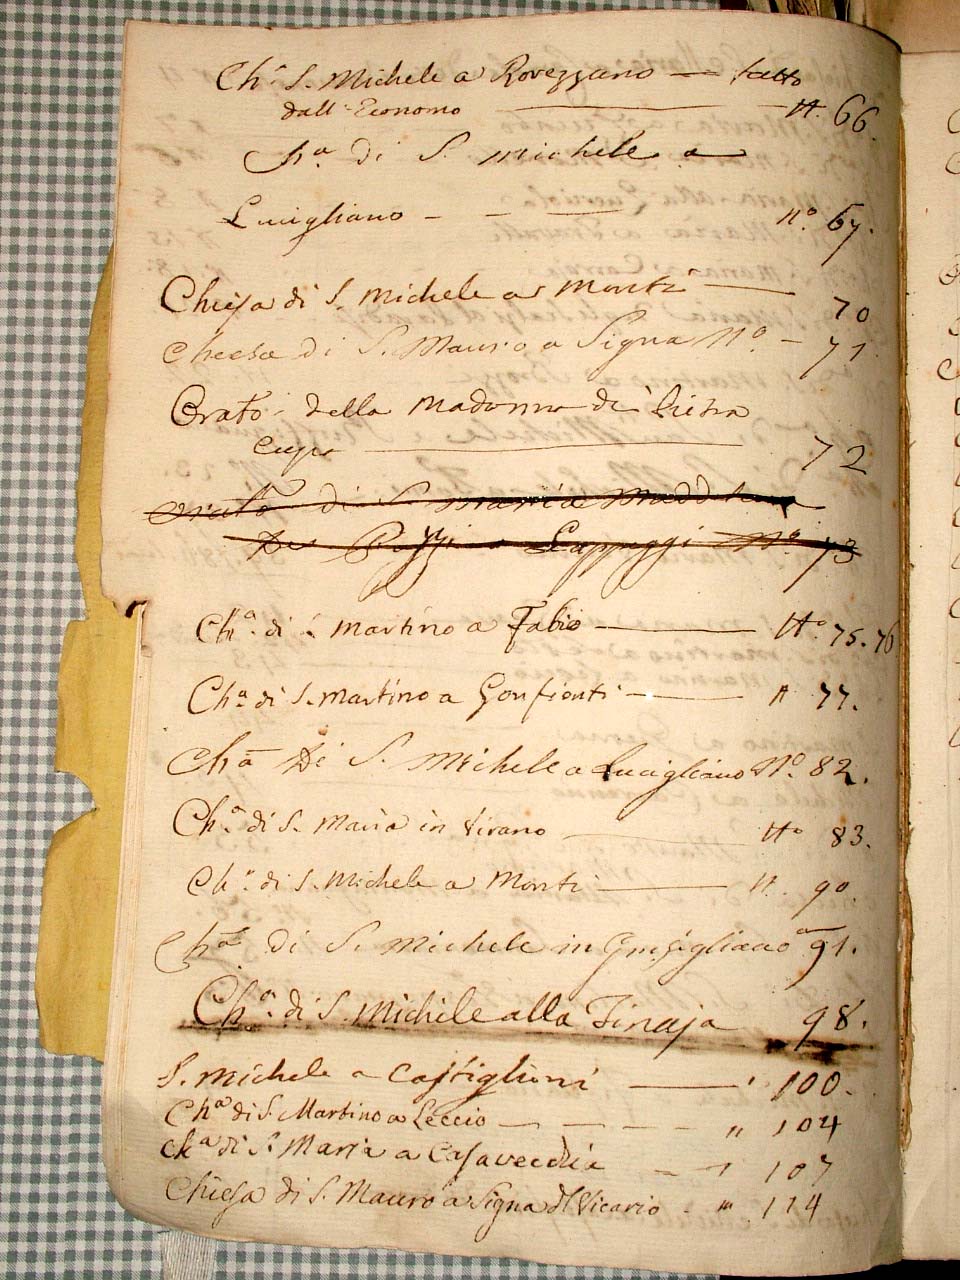 Ch.ª S. Michele a Rovezzano — fatto
dall' Economo — N. 66.
Ch.ª di S. Michele a
Lucigliano - - — N.º 67.
Chiesa di S. Michele a Monti — 70
Chiesa di S. Mauro a Signa N.º - 71
Orato. della Madonna di Pietra
Cupa — 72
Orato di S. Maria Maddalena
De Pazzi a Lappeggi N.º 73
Ch.ª di S. Martino a Fabio — N.º 75. 76
Ch.ª di S. Martino a Gonfionti — N 77.
Chª Di S. Michele a Lucigliano N.º 82.
Ch.ª di S. Maria in Virano — N.º 83.
Ch.ª di S. Michele a Monti — N. 90.
Ch.ª di S. Michele in Grisigliano 91.
Ch.ª di S. Michele alla Tinaja 98.
S. Michele a Castiglioni — 100.
Ch.ª di S. Martino a Leccio — - - - " 104
Ch.ª di S. Maria a Casavecchia - - 107
Chiesa di S. Mauro a Signa Vicario - " 114